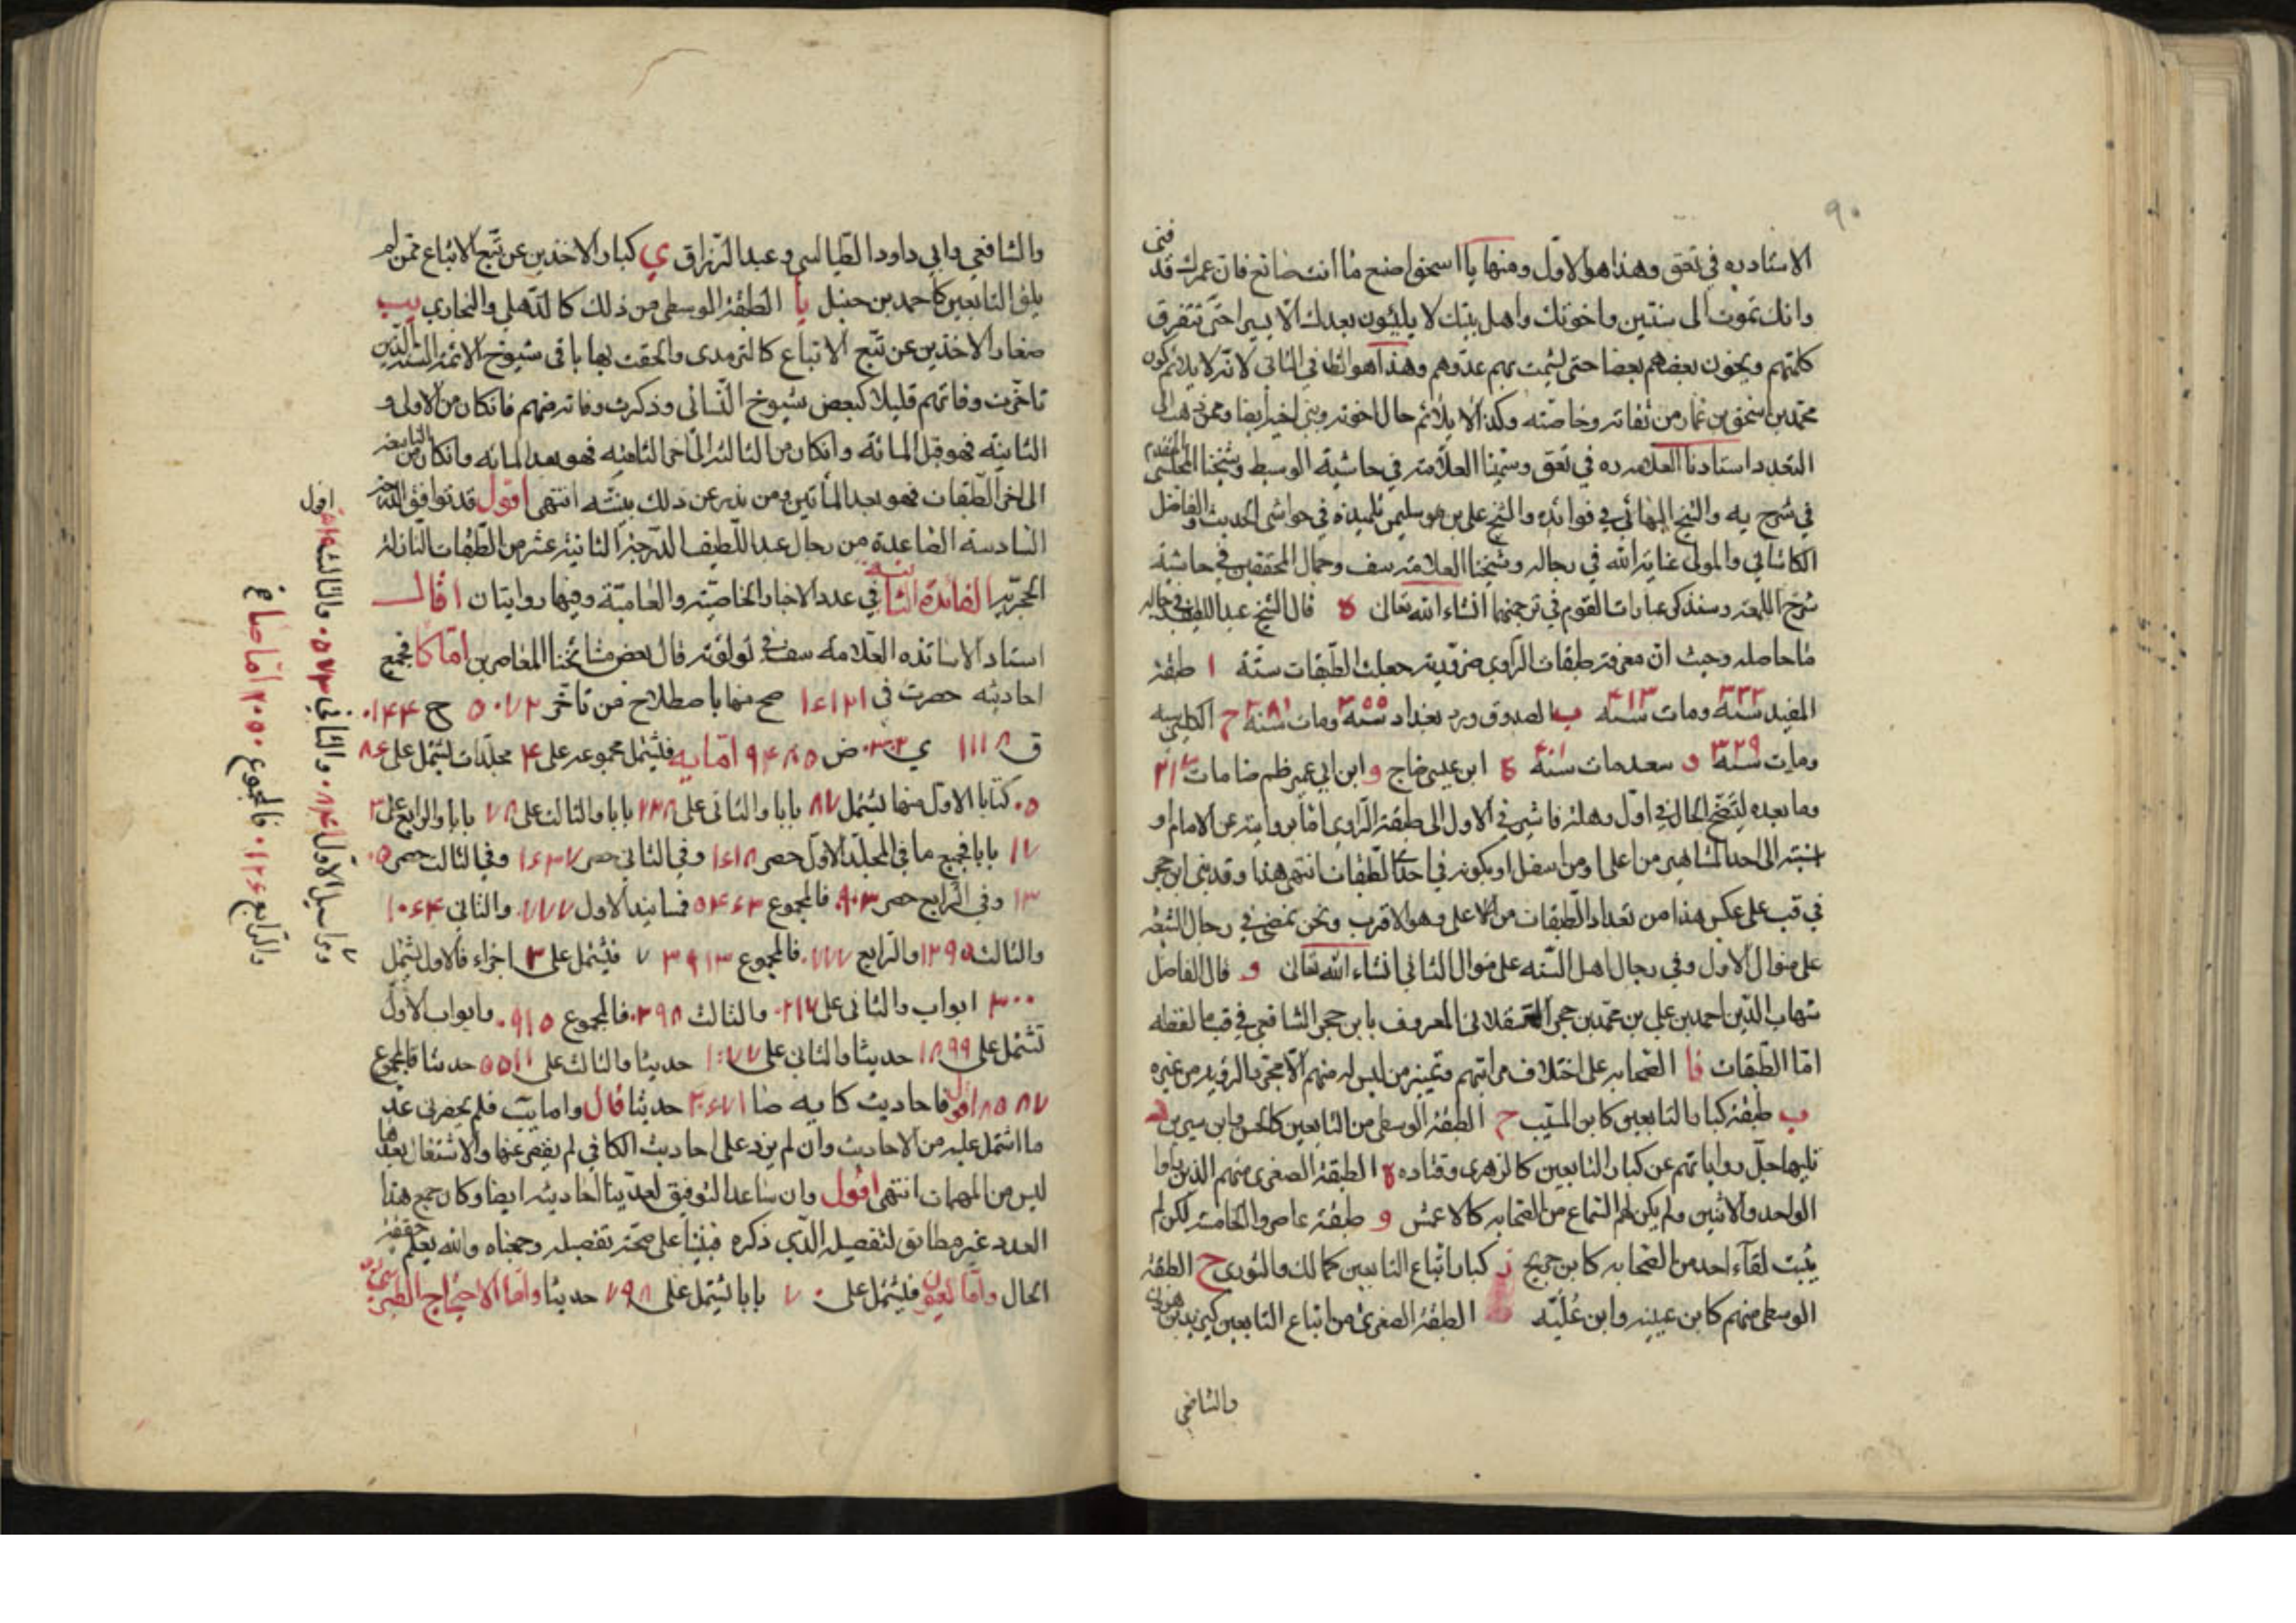 ٩٠
الاستاد ره في تعق وهذا هو الاول ومنها يا اسحق اصنع ما انت صانع فان عمرك قد فنى
وانك تموت الى سنتين واخوتك واهل بيتك لا يلبثون بعدك الا يسيرا حتى تتفرق
كلمتهم ويخون بعضهم بعضا حتى يشمت بهم عدوهم وهذا هو الظ في الثاني لانه لا يلائم كون
محمد بن اسحق بن عمار من ثقاته وخاصته وكذا لا يلائم حال اخوته وبني اخيه ايضا وممن ذهب الى
التعدد استادنا العلامه ره في تعق وسمينا العلامة في حاشية الوسيط وشيخنا المجلسي
في شرح يه والشيخ البهائي في فوائده والشيخ علي بن سليمن تلميذه في حواشي الحديث والفاضل
الكاشاني والمولى عناية الله في رجاله وشيخنا العلامة سف وجمال المحققين في حاشية
شرح اللمعة وسنذكر عبارات القوم في ترجمتهما انشاء الله تعالى ه قال الشيخ عبد اللطيف في رجاله
ما حاصله وحيث ان معرفة طبقات الراوي ضرورية جعلت الطبقات ستة ا طبقة
المفيد سنة ٣٣٢ ومات سنة ٤١٣ ب الصدوق ورد بغداد سنة ٣٥٥ ومات سنة ٣٨١ ح الكليني
ومات سنة ٣٢٩ د سعد مات سنة ٣٠١ ه ابن عيسى و ابن ابي عمير ظم ضا مات ٢١٧
وما بعده ليتضح الحال في اول وهلة فاشير في الاول الى طبقة الراوي اما بروايته عن الامام او
نسبته الى احد المشاهير من اعلى او من اسفل او بكونه في احد الطبقات انتهى هذا وقد بنى ابن حجر
في قب على عكس هذا من تعداد الطبقات من الاعلى وهو الاقرب ونحن نمضي في رجال الشيعة
على منوال الاول وفي رجال اهل السنه على منوال الثاني انشاء الله تعالى و قال الفاضل
شهاب الدين احمد بن علي بن محمد بن حجر العسقلاني المعروف بابن حجر الشافعي في قب ما لفظه
اما الطبقات فا الصحابه على اختلاف مراتبهم وتمييز من ليس له منهم الا مجرد الرؤية من غيره
ب طبقة كبار التابعين كابن المسيب ح الطبقة الوسطى من التابعين كالحسن وابن سيرين د
تليها جل رواياتهم عن كبار التابعين كالزهري وقتاده ه الطبقة الصغرى منهم الذين راوا
الواحد والاثنين ولم يكن لهم السماع من الصحابه كالاعمش و طبقة عاصروا الخامسة لكن لم
يثبت لقاء احد من الصحابه كابن جريج ز كبار اتباع التابعين كمالك والثوري ح الطبقة
الوسطى منهم كابن عيينه وابن علية ط الطبقة الصغرى من اتباع التابعين كيزيد بن هرون
والشافعي
والشافعي وابي داود الطيالسي وعبد الرزاق ي كبار الاخذين عن تبع الاتباع ممن لم
يلق التابعين كاحمد بن حنبل يا الطبقة الوسطى من ذلك كالذهلي والبخاري يب
صغار الاخذين عن تبع الاتباع كالترمذي والحقت بها باقي شيوخ الائمة الستة الذين
تاخرت وفاتهم قليلا كبعض شيوخ النسائي وذكرت وفاته منهم فان كان من الاولى و
الثانية فهو قبل المائة وان كان من الثالثة الى اخر الثامنه فهو بعد المائه وان كان من التاسعة
الى اخر الطبقات فهو بعد المأتين ومن ندر عن ذلك بينته انتهى اقول قد توافق
السادسة الصاعدة من رجال عبد اللطيف الثانية عشر من الطبقات النازلة
الحجرية الفائدة الثانية في عدد الاخبار الخاصية والعامية وفيها روايتان ا قال
استاد الاساتذه العلامه سف في لؤلؤته قال بعض مشائخنا المعاصرين اما كا فجميع
احاديثه حصرت في ١٦١٢١ صح منها باصطلاح من تاخر ٥٠٧٢ ح ١٤٤
ق ١١١٨ ي ٣٠٢ ض ٩٤٨٥ اما يه فيشتمل مجموعه على ٤ مجلدات يشتمل على ٦٨٤
كتابا الاول منها يشتمل ٨٧ بابا والثاني على ٢٢٨ بابا والثالث على ٧٨ بابا والرابع على
بابا فجميع ما في المجلد الاول حصر ١٦١٨ وفي الثاني حصر ١٦٣٧ وفي الثالث حصر
١٣ وفي الرابع حصر ٩٠٣ فالمجموع ٥٤٦٣ فمسانيد الاول ٧٧٧ والثاني ١٠٦٤
والثالث ١٢٩٥ والرابع ٧٧٧ فالمجموع ٣٩١٣ فيشتمل على ٣ اجزاء فالاول يشتمل
٣٠٠ ابواب والثاني على ٢١٧ والثالث ٣٩٨ فالمجموع ٩١٥ وابواب الاول
تشتمل على ١٨٩٩ حديثا والثاني على ١١٧٧ حديثا والثالث على ٥٥١١ حديثا فالمجموع
٨٥٨٧ اقول فاحاديث كا يه صا ٣٠٦٧١ حديثا قال واما يب فلم يحضرني عد
ما اشتمل عليه من الاحاديث وان لم يزد على احاديث الكافي لم يقصر عنها والاشتغال بعدها
ليس من المهمات انتهى اقول وان ساعدنا التوفيق لعددنا احاديثه ايضا وكان جمع هذا
العدد غير مطابق لتفصيله الذي ذكره فبنينا على صحة تفصيله وجمعناه والله يعلم حقيقة
الحال واما فيشتمل على ٧٠ بابا يشتمل على ٧٩٨ حديثا واما الاحتجاج الطبرسي
اقول
ومراسيل الاول ٨٤١ والثاني ٥٧٣ والثالث
والرابع ١٢٦ فالمجموع ٢٠٥٠ اما صاغ